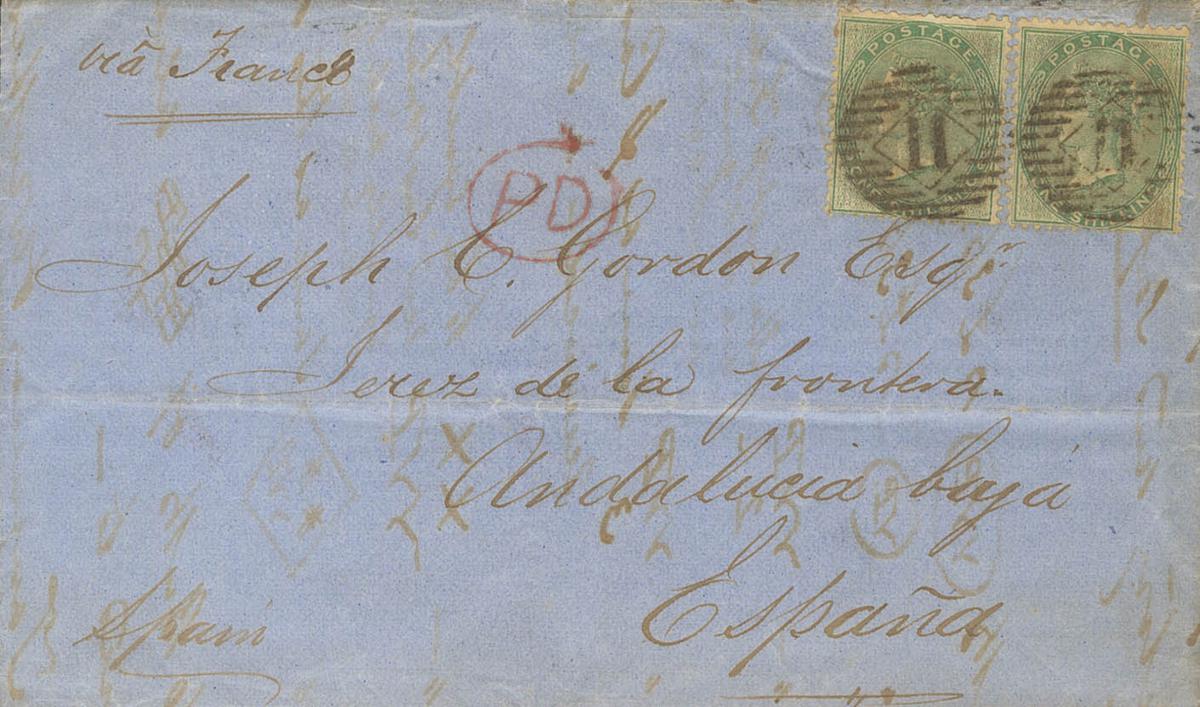 viâ France
POSTAGE
ONE SHILLING
11
POSTAGE
ONE SHILLING
11
PD
Joseph C. Gordon Esqr
Jerez de la frontera.
Andalucia bajá
España
Spain